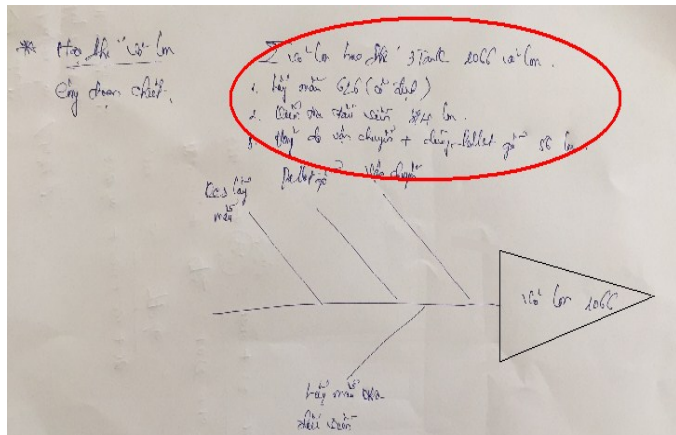 * Hao phí vỏ lon
Công đoạn chiết.
Σ vỏ lon hao phí 3 Tank 1066 vỏ lon.
1. Lấy mẫu 626 (cố định)
2. Kiểm tra đầu viền 384 lon.
3. do vận chuyển + dùng Pallet gỗ 56 lon.
KCS lấy mẫu
Pallet gỗ
Vận chuyển
Vỏ lon 1066
Lấy mẫu
đầu viền